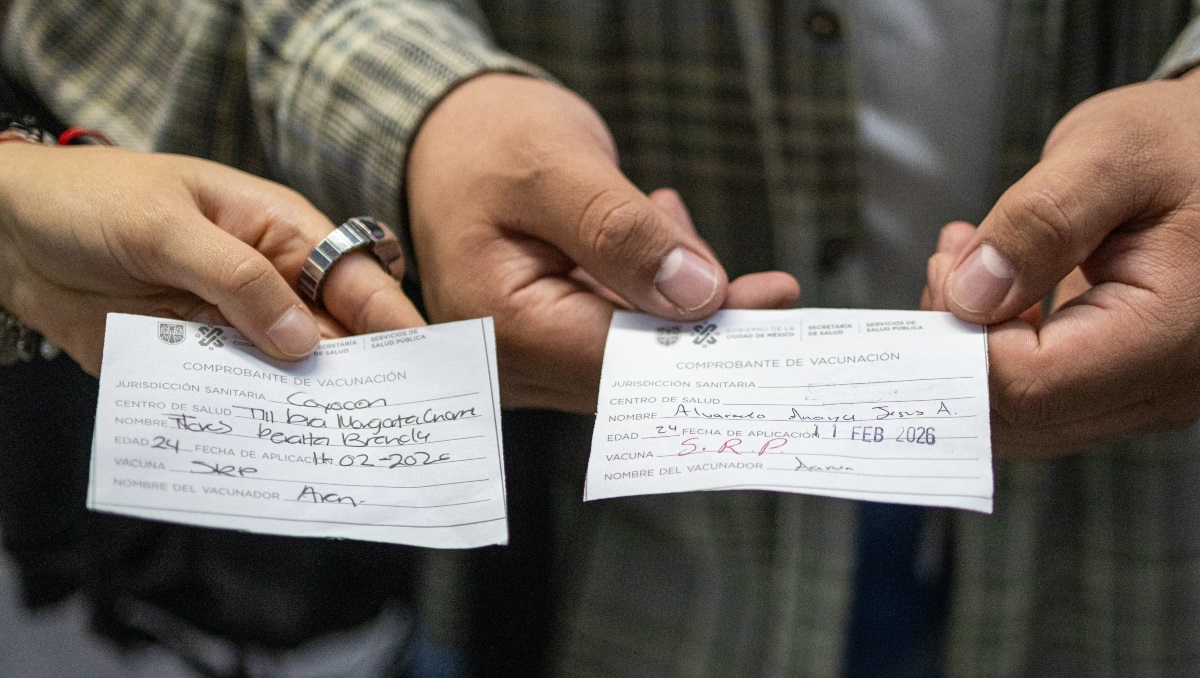 SECRETARÍA DE SALUD SERVICIOS DE SALUD PÚBLICA
COMPROBANTE DE VACUNACIÓN
JURISDICCIÓN SANITARIA Coyoacan
CENTRO DE SALUD TIII Dra Margarita
NOMBRE Brenda
EDAD 24 FECHA DE APLICACIÓN 11-02-2026
VACUNA SRP
NOMBRE DEL VACUNADOR
GOBIERNO DE LA CIUDAD DE MÉXICO SECRETARÍA DE SALUD SERVICIOS DE SALUD PÚBLICA
COMPROBANTE DE VACUNACIÓN
JURISDICCIÓN SANITARIA
CENTRO DE SALUD
NOMBRE Alvarado Anaya Jesus A.
EDAD 24 FECHA DE APLICACIÓN 11 FEB 2026
VACUNA S.R.P.
NOMBRE DEL VACUNADOR